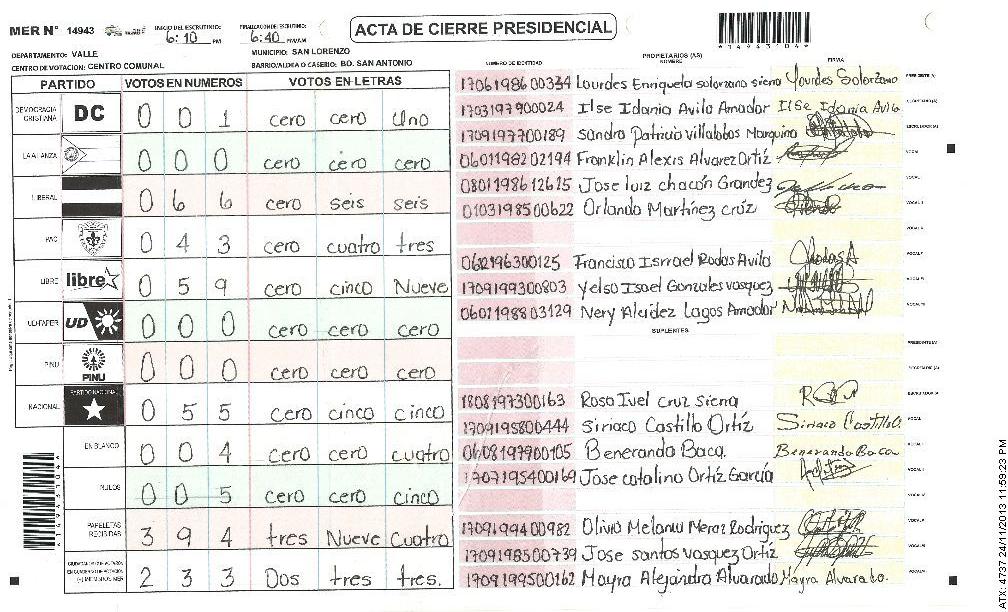 MER N° 14943
INICIO DEL ESCRUTINIO: 6:10 PM
FINALIZACION DEL ESCRUTINIO: 6:40 PM/AM
ACTA DE CIERRE PRESIDENCIAL
*14943104*
DEPARTAMENTO: VALLE
MUNICIPIO: SAN LORENZO
CENTRO DE VOTACION: CENTRO COMUNAL
BARRIO/ALDEA O CASERIO: BO. SAN ANTONIO
PARTIDO VOTOS EN NUMEROS VOTOS EN LETRAS
DEMOCRACIA CRISTIANA DC 0 0 1 cero cero Uno
LA ALIANZA 0 0 0 cero cero cero
LIBERAL 0 6 6 cero seis seis
PAC 0 4 3 cero cuatro tres
LIBRE libre 0 5 9 cero cinco Nueve
UD-FAPER UD 0 0 0 cero cero cero
PINU PINU 0 0 0 cero cero cero
NACIONAL PARTIDO NACIONAL 0 5 5 cero cinco cinco
EN BLANCO 0 0 4 cero cero cuatro
NULOS 0 0 5 cero cero cinco
PAPELETAS RECIBIDAS 3 9 4 tres Nueve Cuatro
2 3 3 Dos tres tres.
*14943104*
NUMERO DE IDENTIDAD PROPIETARIOS (AS) NOMBRE FIRMA
1706198600334 Lourdes Enriqueta solorzano siena Yourdes Solorzano PRESIDENTE (A)
1703197900024 Ilse Idania Avila Amador Ilse Idania Avila SECRETARIO (A)
1709197700189 Sandra Patricia villalobos Manquina ESCRUTADOR (A)
0601198202194 Franklin Alexis Alvarez Ortiz VOCAL
0801198612615 Jose luiz chacón Grandez VOCAL
0103198500622 Orlando Martínez cruz VOCAL
VOCAL
0602196300125 Francisco Ismael Rodas Avila VOCAL
1709199300803 Yelso Isael Gonzales vasquez VOCAL
0601198803129 Nery Alcidez Lagos Amador VOCAL
SUPLENTES
PRESIDENTE (A)
SECRETARIO (A)
1808197300163 Rosa Ivel cruz siena ESCRUTADOR (A)
1709195800444 Siriaco Castillo Ortiz Siriaco Castillo. VOCAL
0608197900105 Benerando Baca. Benerando Baca VOCAL
1707195400169 Jose catalino Ortiz García VOCAL
VOCAL
1709199400982 Olivia Melania Meraz Rodriguez VOCAL
1709198500739 Jose santos vasquez Ortiz VOCAL
1709199500162 Mayra Alejandra Alvarado Mayra Alvarado. VOCAL
ATX: 4737 24/11/2013 11:59:23 PM